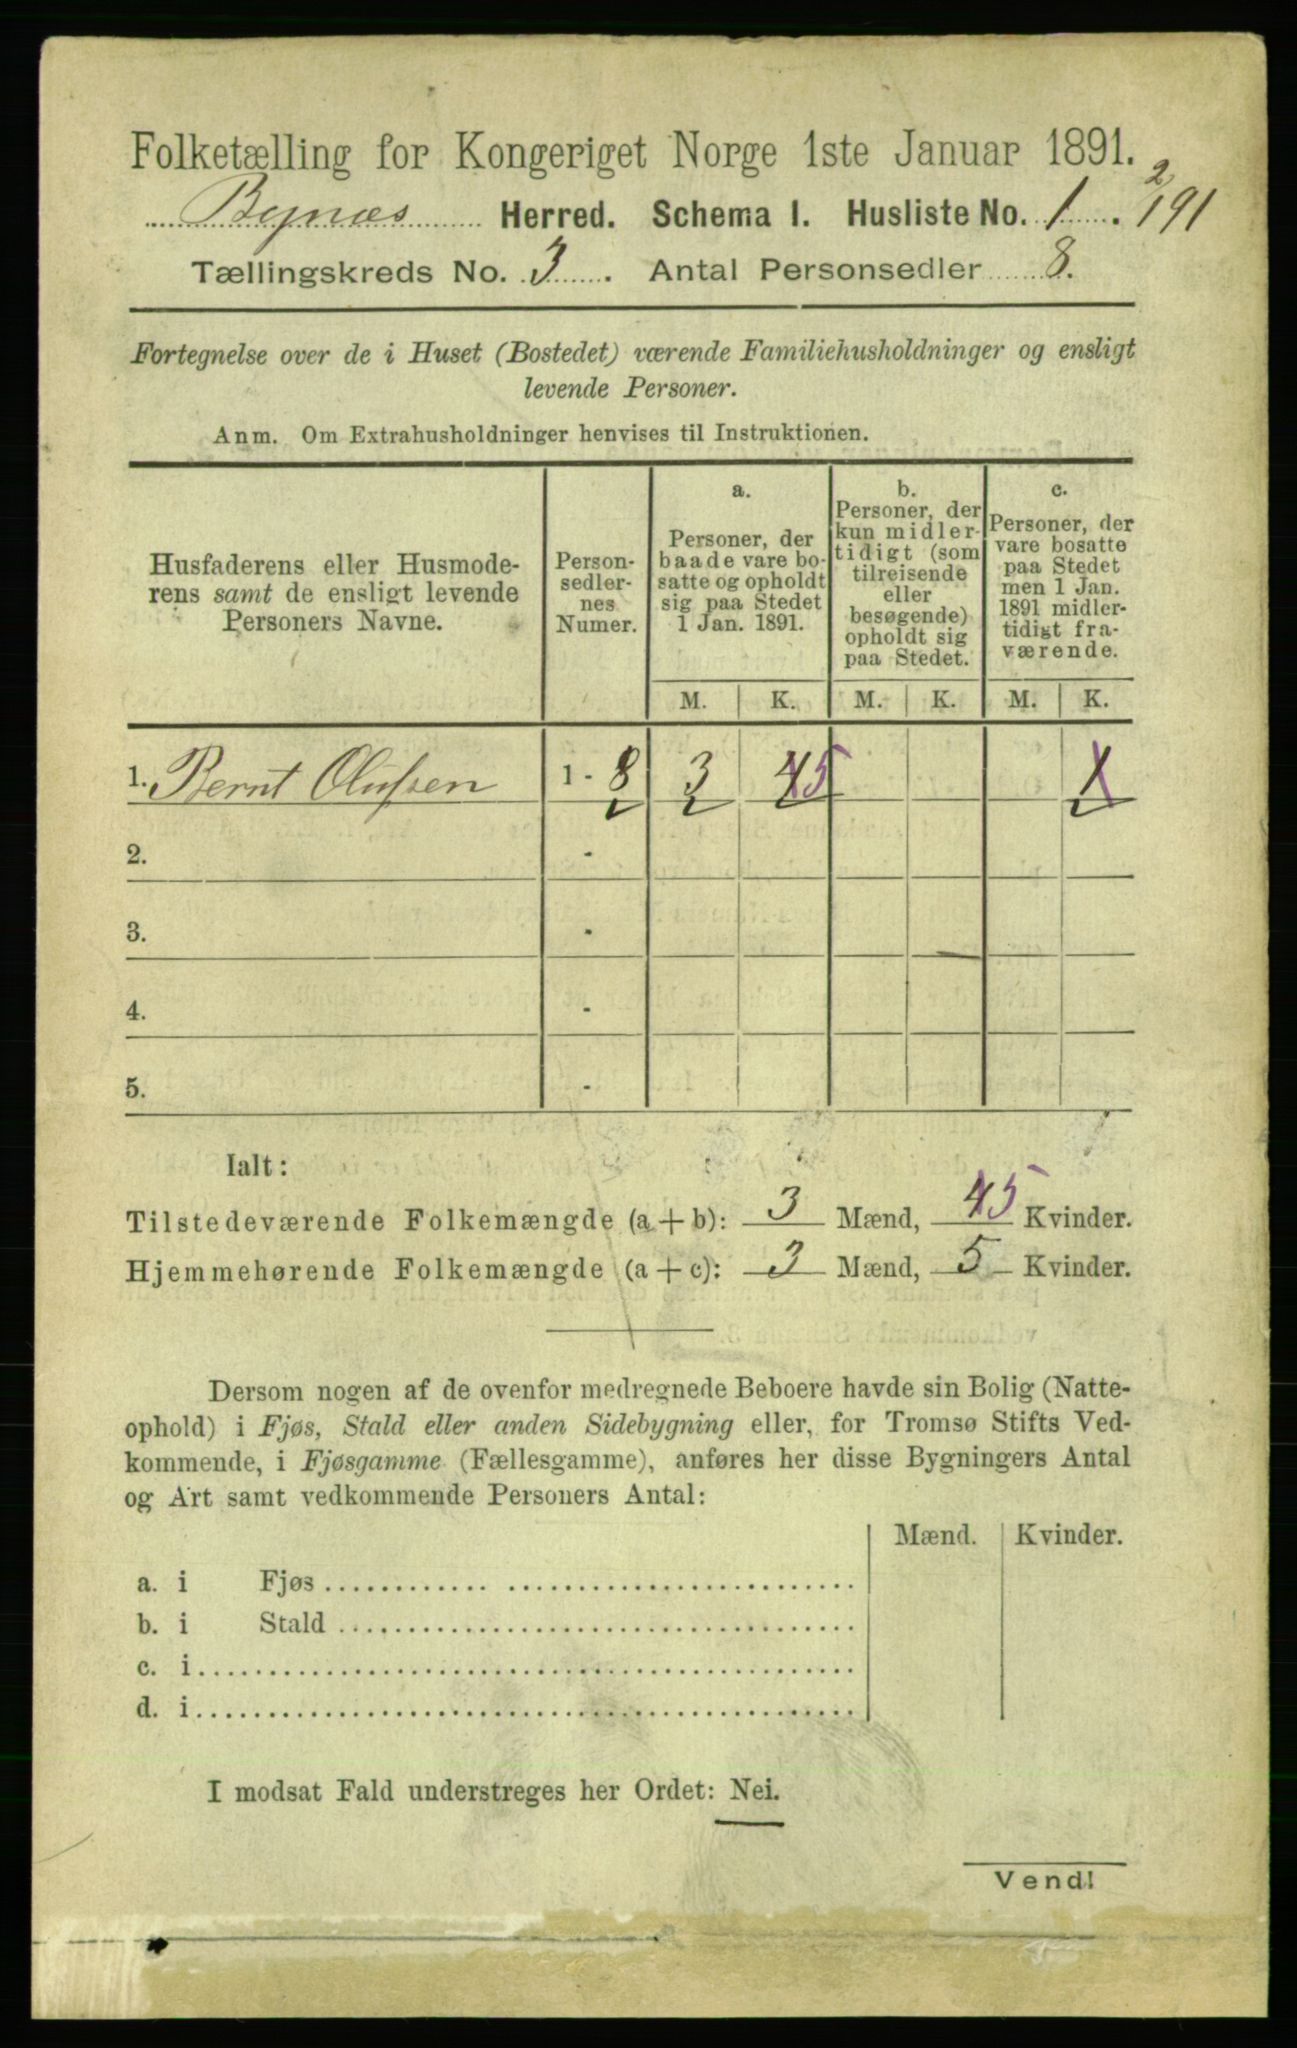 Folketælling for Kongeriget Norge 1ste Januar 1891.
Bynæs Herred. Schema I. Husliste No. 1. 2/191
Tællingskreds No. 3. Antal Personsedler 8.
Fortegnelse over de i Huset (Bostedet) værende Familiehusholdninger og ensligt
levende Personer.
Anm. Om Extrahusholdninger henvises til Instruktionen.
Husfaderens eller Husmode-
rens samt de ensligt levende
Personers Navne.
Person-
sedler-
nes
Numer.
a.
Personer, der
baade vare bo-
satte og opholdt
sig paa Stedet
1 Jan. 1891.
b.
Personer, der
kun midler-
tidigt (som
tilreisende
eller
besøgende)
opholdt sig
paa Stedet.
c.
Personer, der
vare bosatte
paa Stedet
men 1 Jan.
1891 midler-
tidigt fra-
værende.
M. K. M. K. M. K.
1. Bernt Olufsen 1 - 8 3 45 1
2. -
3. -
4. -
5. -
Ialt:
Tilstedeværende Folkemængde (a + b): 3 Mænd, 45 Kvinder.
Hjemmehørende Folkemængde (a + c): 3 Mænd, 5 Kvinder.
Dersom nogen af de ovenfor medregnede Beboere havde sin Bolig (Natte-
ophold) i Fjøs, Stald eller anden Sidebygning eller, for Tromsø Stifts Ved-
kommende, i Fjøsgamme (Fællesgamme), anføres her disse Bygningers Antal
og Art samt vedkommende Personers Antal:
Mænd. Kvinder.
a. i Fjøs
b. i Stald
c. i
d. i
I modsat Fald understreges her Ordet: Nei.
Vend!